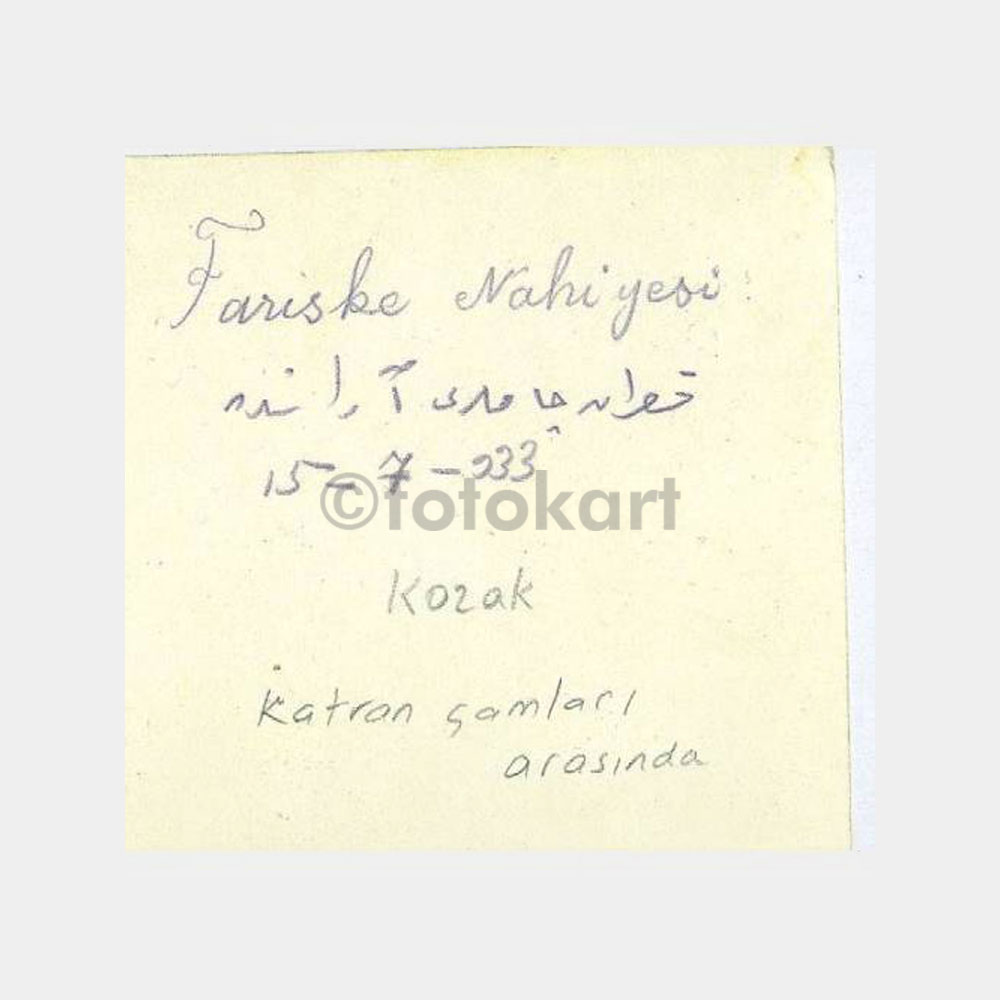 Fariske Nahiyesi
قطران چاملری آراسنده
15-7-933
©fotokart
Kozak
Katran çamları
arasında